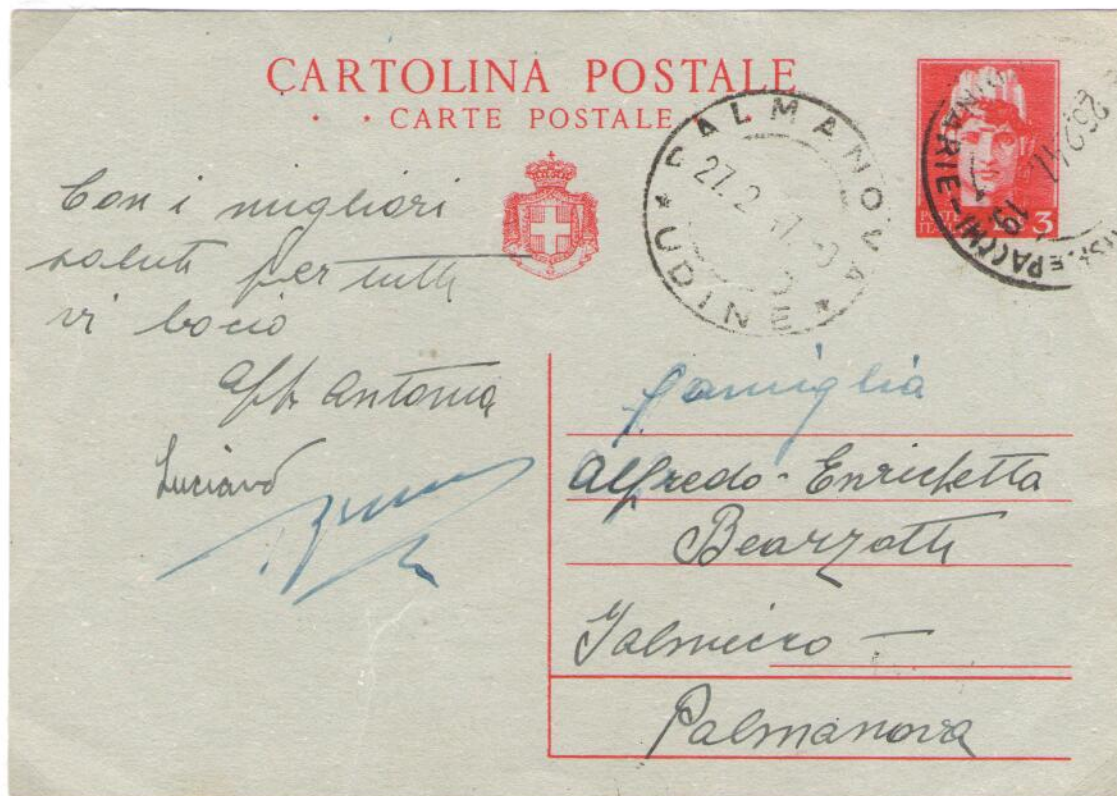 CARTOLINA POSTALE
CARTE POSTALE
PALMANOVA
27.2
* UDINE *
26.2.47
19
POSTE
ITAL
3
Con i migliori
saluti per tutti
vi bacio
aff Antonia
Luciano
famiglia
Alfredo - Enrichetta
Bearzotti
Jalmicco -
Palmanova